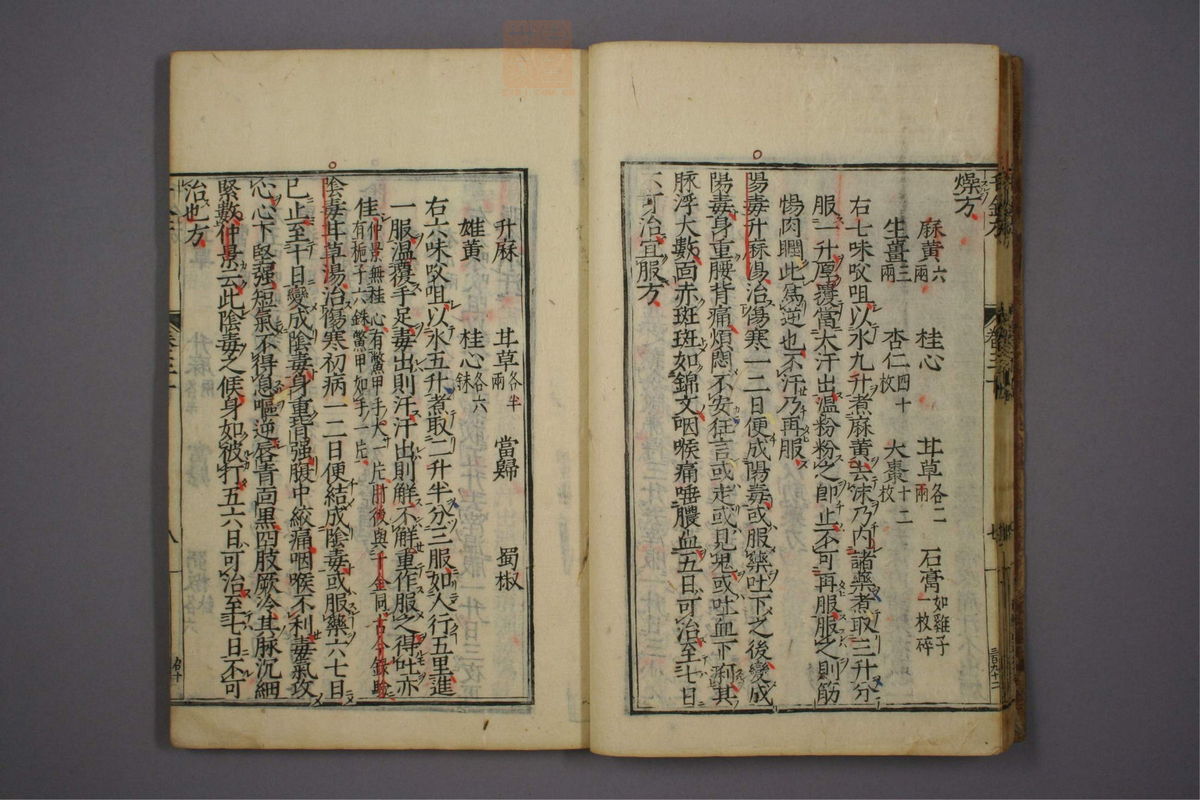 燥方
麻黃六兩 桂心 甘草各二兩 石膏如雞子一枚碎
生薑三兩 杏仁四十枚 大棗十二枚
右七味㕮咀以水九升煮麻黃去沫乃內諸藥煮取三升分
服一升厚覆當大汗出溫粉粉之即止不可再服服之則筋
惕肉瞤此為逆也不汗乃再服
陽毒升麻湯治傷寒一二日便成陽毒或服藥吐下之後變成
陽毒身重腰背痛煩悶不安狂言或走或見鬼或吐血下痢其
脉浮大數面赤斑斑如錦文咽喉痛唾膿血五日可治至七日
不可治宜服方
升麻 甘草各半兩 當歸 蜀椒
雄黃 桂心各六銖
右六味㕮咀以水五升煮取二升半分三服如人行五里進
一服溫覆手足毒出則汗汗出則解不解重作服之得吐亦
佳仲景無桂心有鱉甲手大一片肘後與千金同古今錄驗
有梔子六銖鱉甲如手一片
陰毒甘草湯治傷寒初病一二日便結成陰毒或服藥六七日
已上至十日變成陰毒身重背強腹中絞痛咽喉不利毒氣攻
心心下堅強短氣不得息嘔逆唇青面黑四肢厥冷其脉沉細
緊數仲景云此陰毒之候身如被打五六日可治至七日不可
治也方